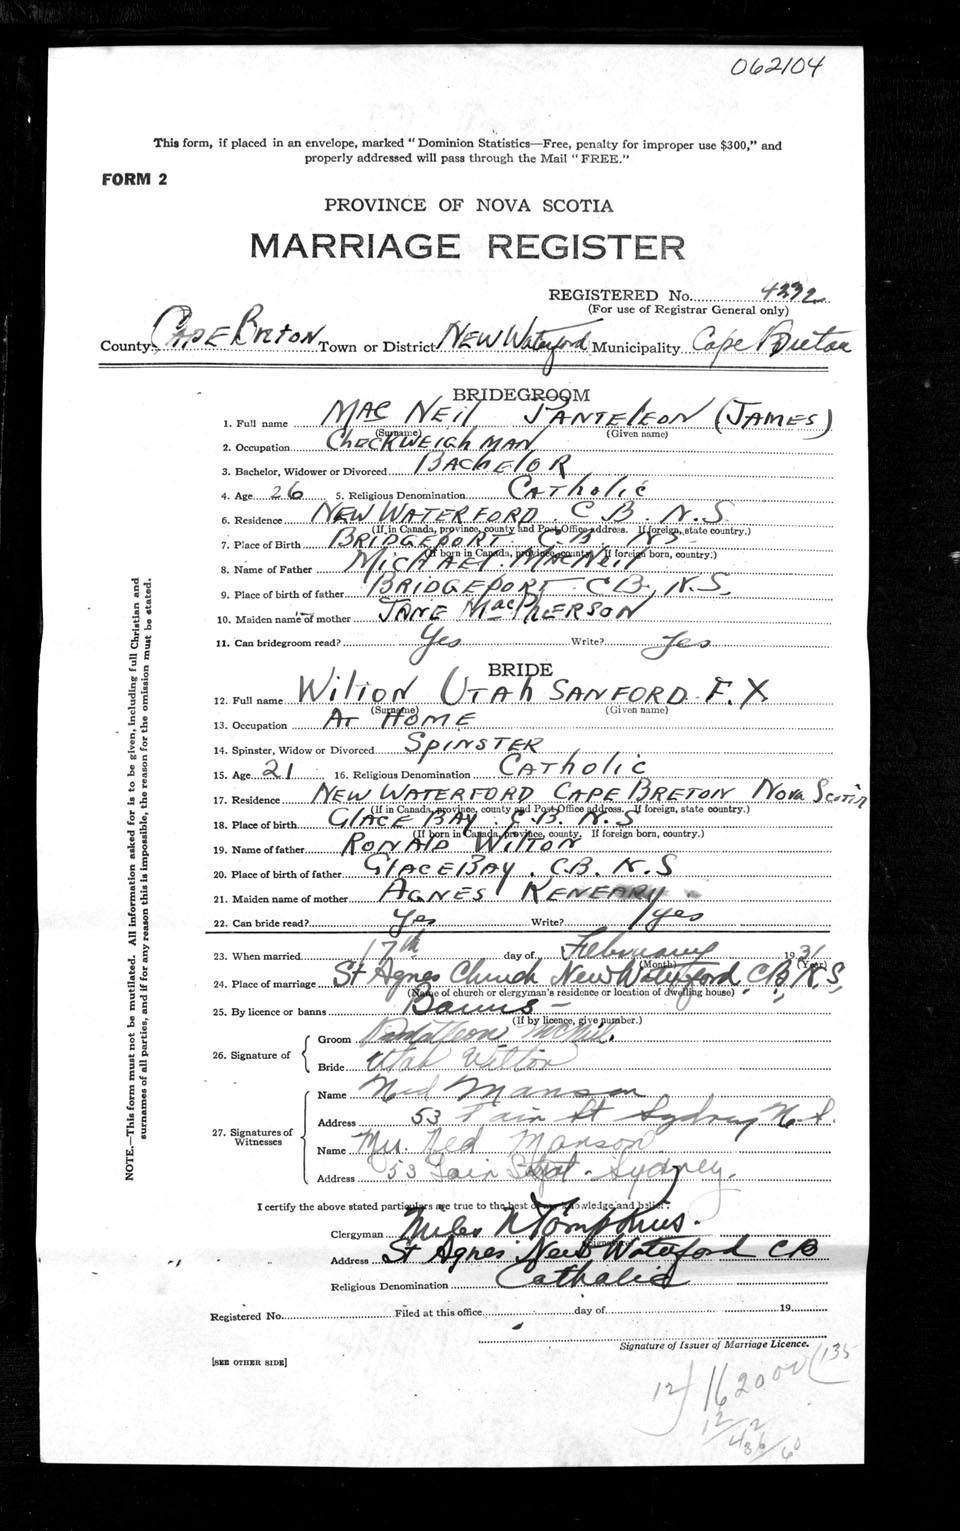 062104
This form, if placed in an envelope, marked "Dominion Statistics—Free, penalty for improper use $300," and
properly addressed will pass through the Mail "FREE."
FORM 2
PROVINCE OF NOVA SCOTIA
MARRIAGE REGISTER
REGISTERED No. 4332
(For use of Registrar General only)
County Cape Breton Town or District New Waterford Municipality Cape Breton
BRIDEGROOM
1. Full name Mac Neil Panteleon (James)
(Surname) (Given name)
2. Occupation Checkweighman
3. Bachelor, Widower or Divorced Bachelor
4. Age 26 5. Religious Denomination Catholic
6. Residence New Waterford C B. N.S
(If in Canada, province, county and Post Office address. If foreign, state country.)
7. Place of Birth Bridgeport C.B.
(If born in Canada, province, county. If foreign born, country.)
8. Name of Father Michael MacNeil
9. Place of birth of father Bridgeport CB, N.S.
10. Maiden name of mother Jane MacPherson
11. Can bridegroom read? Yes Write? Yes
BRIDE
12. Full name Wilton Utah Sanford F. X
(Surname) (Given name)
13. Occupation At Home
14. Spinster, Widow or Divorced Spinster
15. Age 21 16. Religious Denomination Catholic
17. Residence New Waterford Cape Breton Nova Scotia
(If in Canada, province, county and Post Office address. If foreign, state country.)
18. Place of birth Glace Bay. C.B. N.S
(If born in Canada, province, county. If foreign born, country.)
19. Name of father Ronald Wilton
20. Place of birth of father Glace Bay. C.B. N.S
21. Maiden name of mother Agnes Keneary
22. Can bride read? Yes Write? Yes
23. When married 17th day of February 1931
(Month) (Year)
24. Place of marriage St Agnes Church New Waterford C.B, N.S,
(Name of church or clergyman's residence or location of dwelling house)
25. By licence or banns Banns
(If by licence, give number.)
26. Signature of
Groom Pantaleon McNeil.
Bride Utah Wilton
27. Signatures of Witnesses
Name Ned Manson
Address 53 Fair St Sydney N.S.
Name Mrs. Ned Manson
Address 53 Fair Street. Sydney.
I certify the above stated particulars are true to the best of my knowledge and belief.
Clergyman Miles N Tompkins.
(Signature)
Address St Agnes New Waterford CB
Religious Denomination Catholic
Registered No. Filed at this office day of 19
Signature of Issuer of Marriage Licence.
[SEE OTHER SIDE]
NOTE.—This form must not be mutilated. All information asked for is to be given, including full Christian and
surnames of all parties, and if for any reason this is impossible, the reason for the omission must be stated.
12 135
12